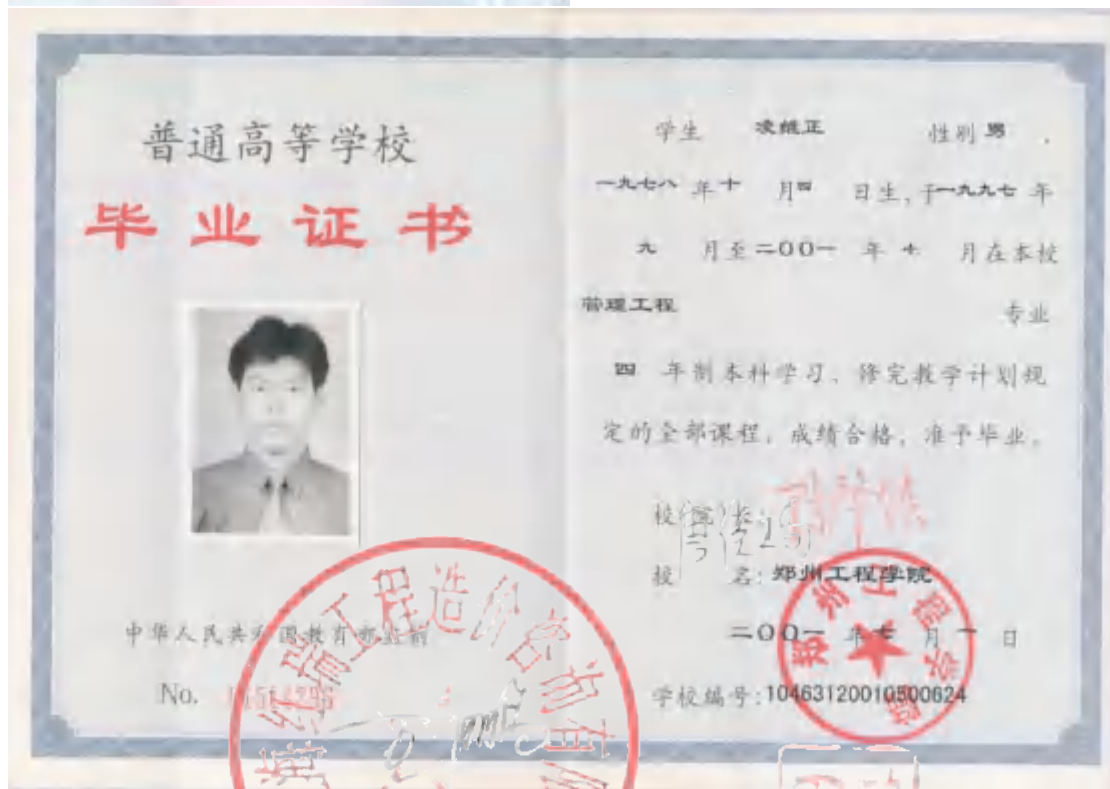 普通高等学校
毕业证书
中华人民共和国教育部监制
No.
学生 凌继正 性别 男 .
一九七八 年 十 月 四 日生, 于 一九九七 年
九 月至 二〇〇一 年 七 月在本校
管理工程 专业
四 年制本科学习、修完教学计划规
定的全部课程, 成绩合格, 准予毕业。
校(院)长:
校 名: 郑州工程学院
二〇〇一 年 七 月 一 日
学校编号: 10463120010500624
郑州工程学院
瑞工程造价咨询有限